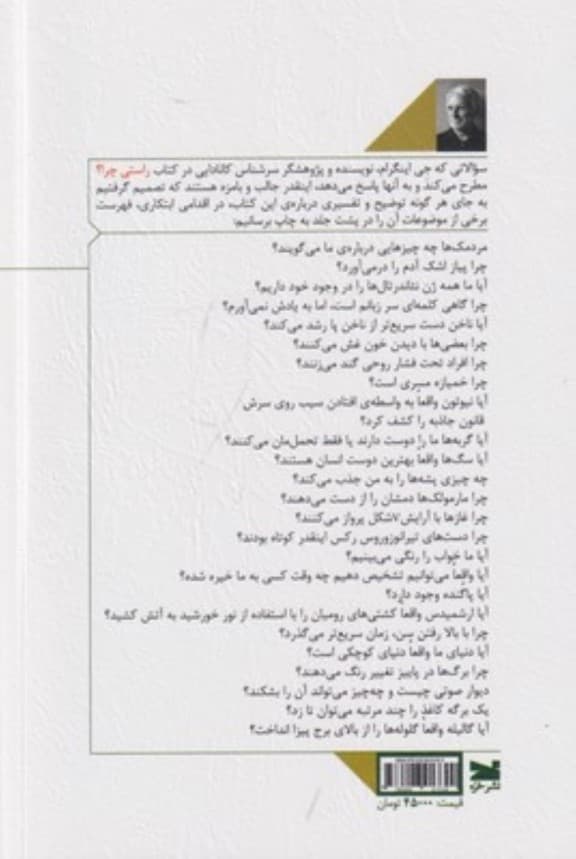 سؤالاتی که جی اینگرام، نویسنده و پژوهشگر سرشناس کانادایی در کتاب راستی چرا؟
مطرح می‌کند و به آنها پاسخ می‌دهد، اینقدر جالب و بامزه هستند که تصمیم گرفتیم
به جای هر گونه توضیح و تفسیری درباره‌ی این کتاب، در اقدامی ابتکاری، فهرست
برخی از موضوعات آن را در پشت جلد به چاپ برسانیم:
مردمک‌ها چه چیزهایی درباره‌ی ما می‌گویند؟
چرا پیاز اشک آدم را درمی‌آورد؟
آیا ما همه ژن نئاندرتال‌ها را در وجود خود داریم؟
چرا گاهی کلمه‌ای سر زبانم است، اما به یادش نمی‌آورم؟
آیا ناخن دست سریع‌تر از ناخن پا رشد می‌کند؟
چرا بعضی‌ها با دیدن خون غش می‌کنند؟
چرا افراد تحت فشار روحی گند می‌زنند؟
چرا خمیازه مسری است؟
آیا نیوتون واقعاً به واسطه‌ی افتادن سیب روی سرش
قانون جاذبه را کشف کرد؟
آیا گربه‌ها ما را دوست دارند یا فقط تحمل‌مان می‌کنند؟
آیا سگ‌ها واقعاً بهترین دوست انسان هستند؟
چه چیزی پشه‌ها را به من جذب می‌کند؟
چرا مارمولک‌ها دمشان را از دست می‌دهند؟
چرا غازها با آرایش ۷شکل پرواز می‌کنند؟
چرا دست‌های تیرانوزوروس رکس اینقدر کوتاه بودند؟
آیا ما خواب را رنگی می‌بینیم؟
آیا واقعاً می‌توانیم تشخیص دهیم چه وقت کسی به ما خیره شده؟
آیا پاگنده وجود دارد؟
آیا ارشمیدس واقعاً کشتی‌های رومیان را با استفاده از نور خورشید به آتش کشید؟
چرا با بالا رفتن سن، زمان سریع‌تر می‌گذرد؟
آیا دنیای ما واقعاً دنیای کوچکی است؟
چرا برگ‌ها در پاییز تغییر رنگ می‌دهند؟
دیوار صوتی چیست و چه‌چیز می‌تواند آن را بشکند؟
یک برگه کاغذ را چند مرتبه می‌توان تا زد؟
آیا گالیله واقعاً گلوله‌ها را از بالای برج پیزا انداخت؟
نشر خزه
قیمت: ۴۵۰۰۰ تومان